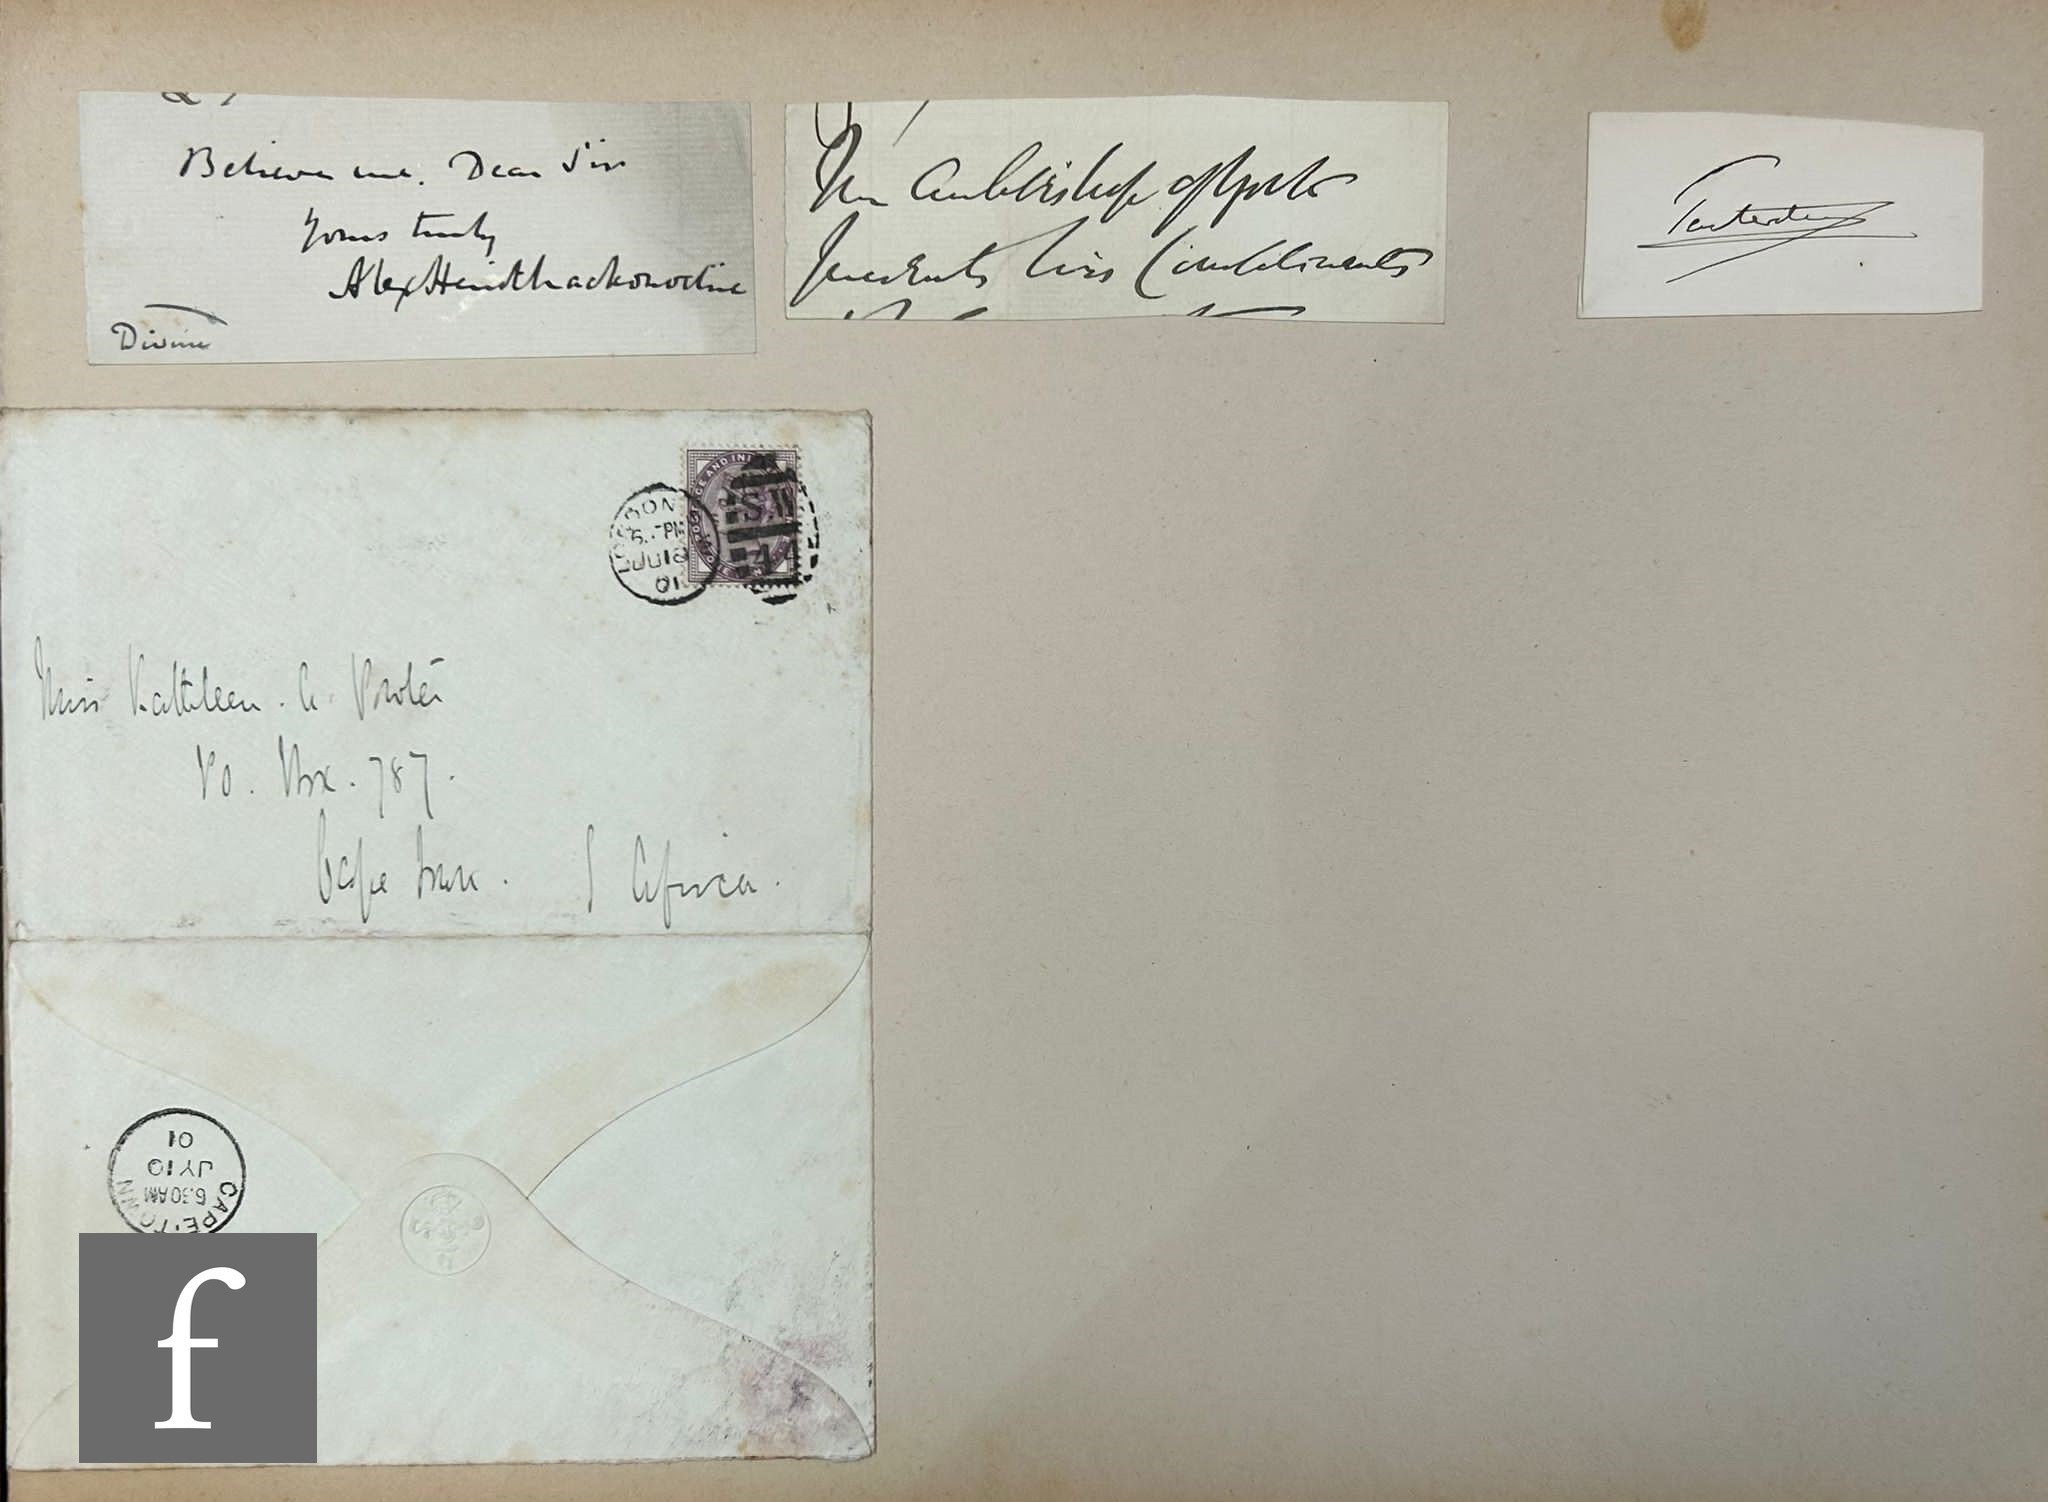 Believe me. Dear Sir
Yours truly
Divine
The Archbishop of York
presents his Compliments
Tenterden
LONDON
5. PM
JU 18
01
S.W
44
Miss Kathleen. A. Porter
PO. Box. 787.
Cape Town. S Africa.
CAPE TOWN
6.30 AM
JY 10
01
f